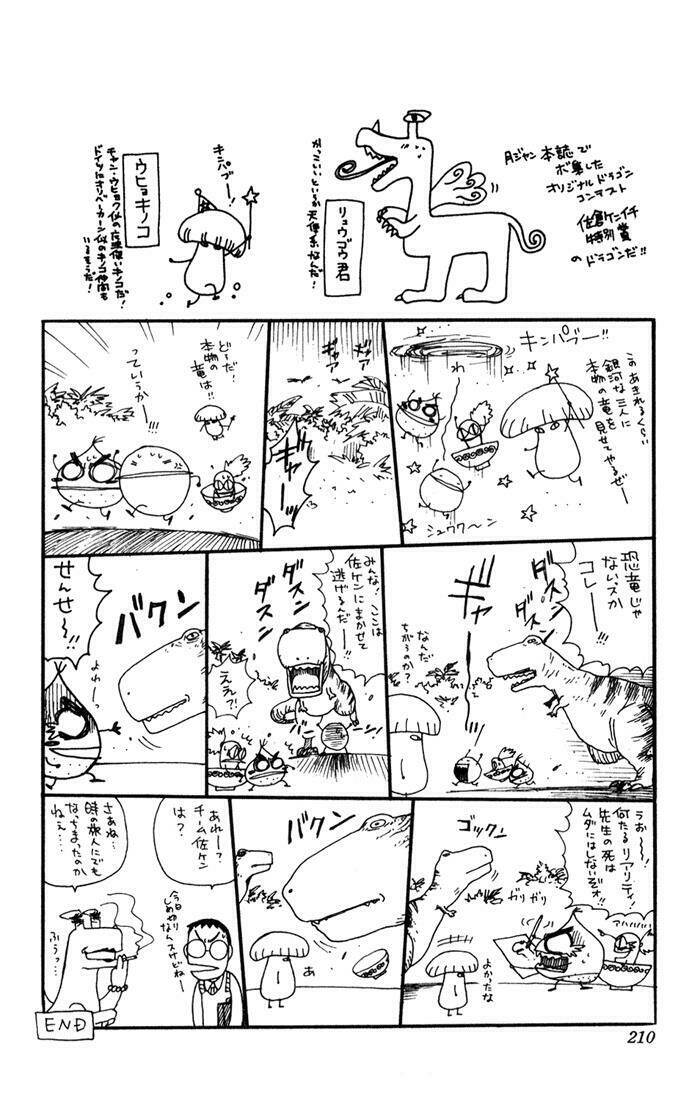 月ジャン本誌で
ボ集した
オリジナルドラゴン
コンテスト
佐倉ケンイチ
特別賞
のドラゴンだ!!
リュウゴウ君
かっこいいというか
天使系なんだ!
キンパブー!
ウヒョキノコ
チャン・ウヒョク似の魔法使いキノコだ!
ドイツにオリバーカーン似のキノコ仲間も
いるそうだ!
キンパブー!!
このあきれるくらい
銀河な三人に
本物の竜を
見せてやるぜー
わ
シュワワ〜ン
ギャア
ギャア
ギャーッ
ど〜だ!
本物の
竜は!!
っていうか
ー!!
恐竜じゃ
ないスか
コレー!!
ダスン
ダスン
ギャー
なんだ
ちがうのか?
ダスン
ダスン
みんな!ここは
佐ケンにまかせて
逃げるんだー!!
ええ?!
バクン
せんせ〜!!
よわーっ
うお〜〜!
何たるリアリティ!
先生の死は
ムダにはしないぞォ!!
アハハハハ
ガリガリ
ゴックン
よかったな
バクン
あ
あれー?
チーム佐ケン
は?
今日〆切り
なんスけどねー
さあね…
時の旅人にでも
なっちまったのか
ねえ…
ふうっ…
END
210